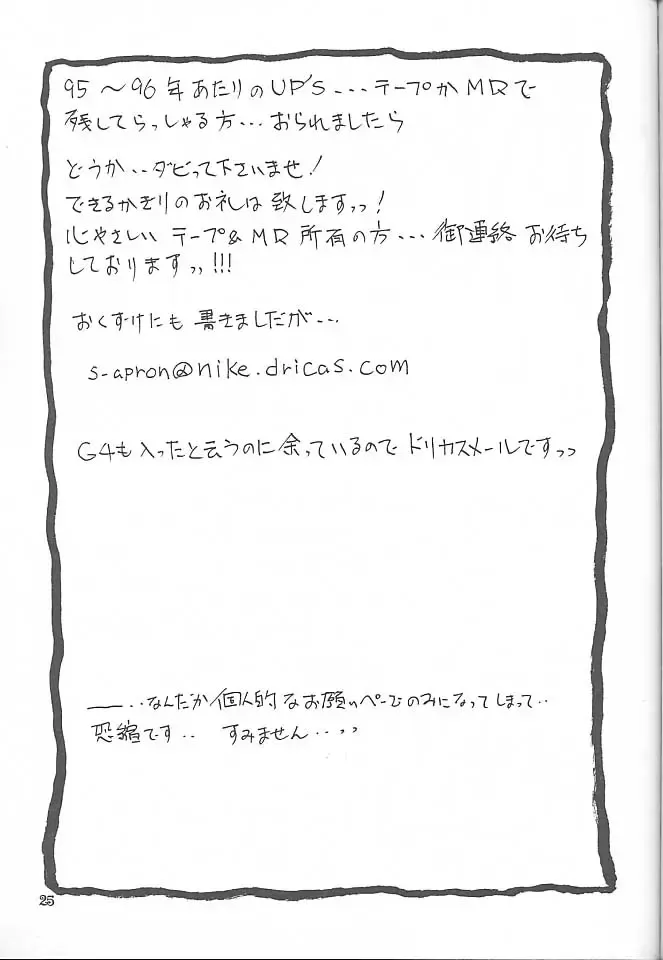 95〜96年あたりのUP'S...テープかMDで
残してらっしゃる方...おられましたら
どうか..ダビって下さいませ!
できるかぎりのお礼は致しますっっ!
心やさしい テープ&MD 所有の方... 御連絡 お待ち
しておりますっっ!!!
おくずけにも 書きましたが...
s-apron@nike.dricas.com
G4も入ったと云うのに余っているので ドリカスメールですっっ
――..なんだか個人的なお願いページのみになってしまって..
恐縮です.. すみません..っっ
25